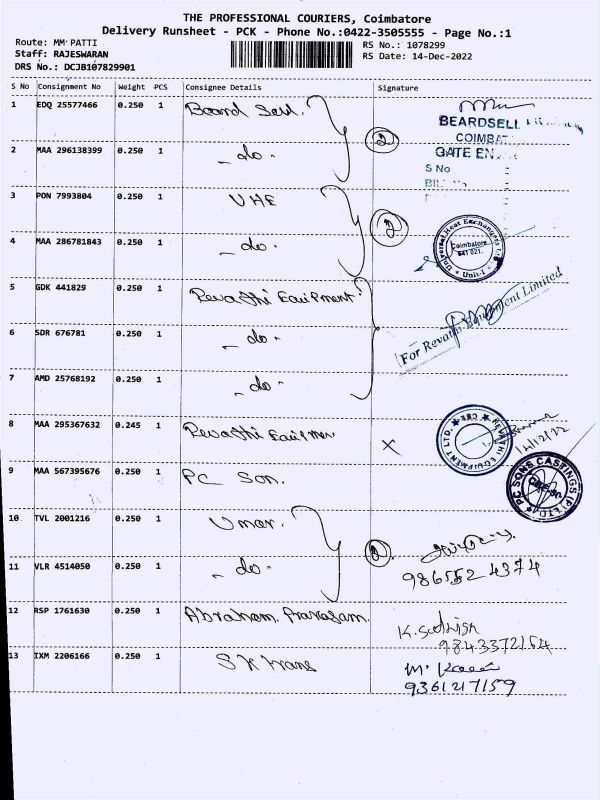 THE PROFESSIONAL COURIERS, Coimbatore
Delivery Runsheet - PCK - Phone No.:0422-3505555 - Page No.:1
Route: MM PATTI
RS No.: 1078299
Staff: RAJESWARAN
RS Date: 14-Dec-2022
DRS No.: DCJB107829901
S No Consignment No Weight PCS Consignee Details Signature
1 EDQ 25577466 0.250 1 Board Sell.
BEARDSELL
COIMBA
2 MAA 296138399 0.250 1 - do - 2
GATE EN
S No
3 PON 7993804 0.250 1 UHE 2
4 MAA 286781843 0.250 1 - do -
Universal Heat Exchangers Ltd * Unit-I * Coimbatore 641 021.
5 GDK 441829 0.250 1 Revathi Equipment
For Revathi Equipment Limited
6 SDR 676781 0.250 1 - do -
7 AMD 25768192 0.250 1 - do -
8 MAA 295367632 0.245 1 Revathi Equipmen X
REVATHI EQUIPMENT LTD. * CBE *
14/12/22
9 MAA 567395676 0.250 1 PC Son.
PC SONS CASTINGS (P) LTD
10. TVL 2001216 0.250 1 Umar. 2.
11 VLR 4514050 0.250 1 - do -
986552 4374
12 RSP 1761630 0.250 1 Abraham. Pravasam.
K. Sathish
9843372164
13 IXM 2206166 0.250 1 S K trans
9361217159